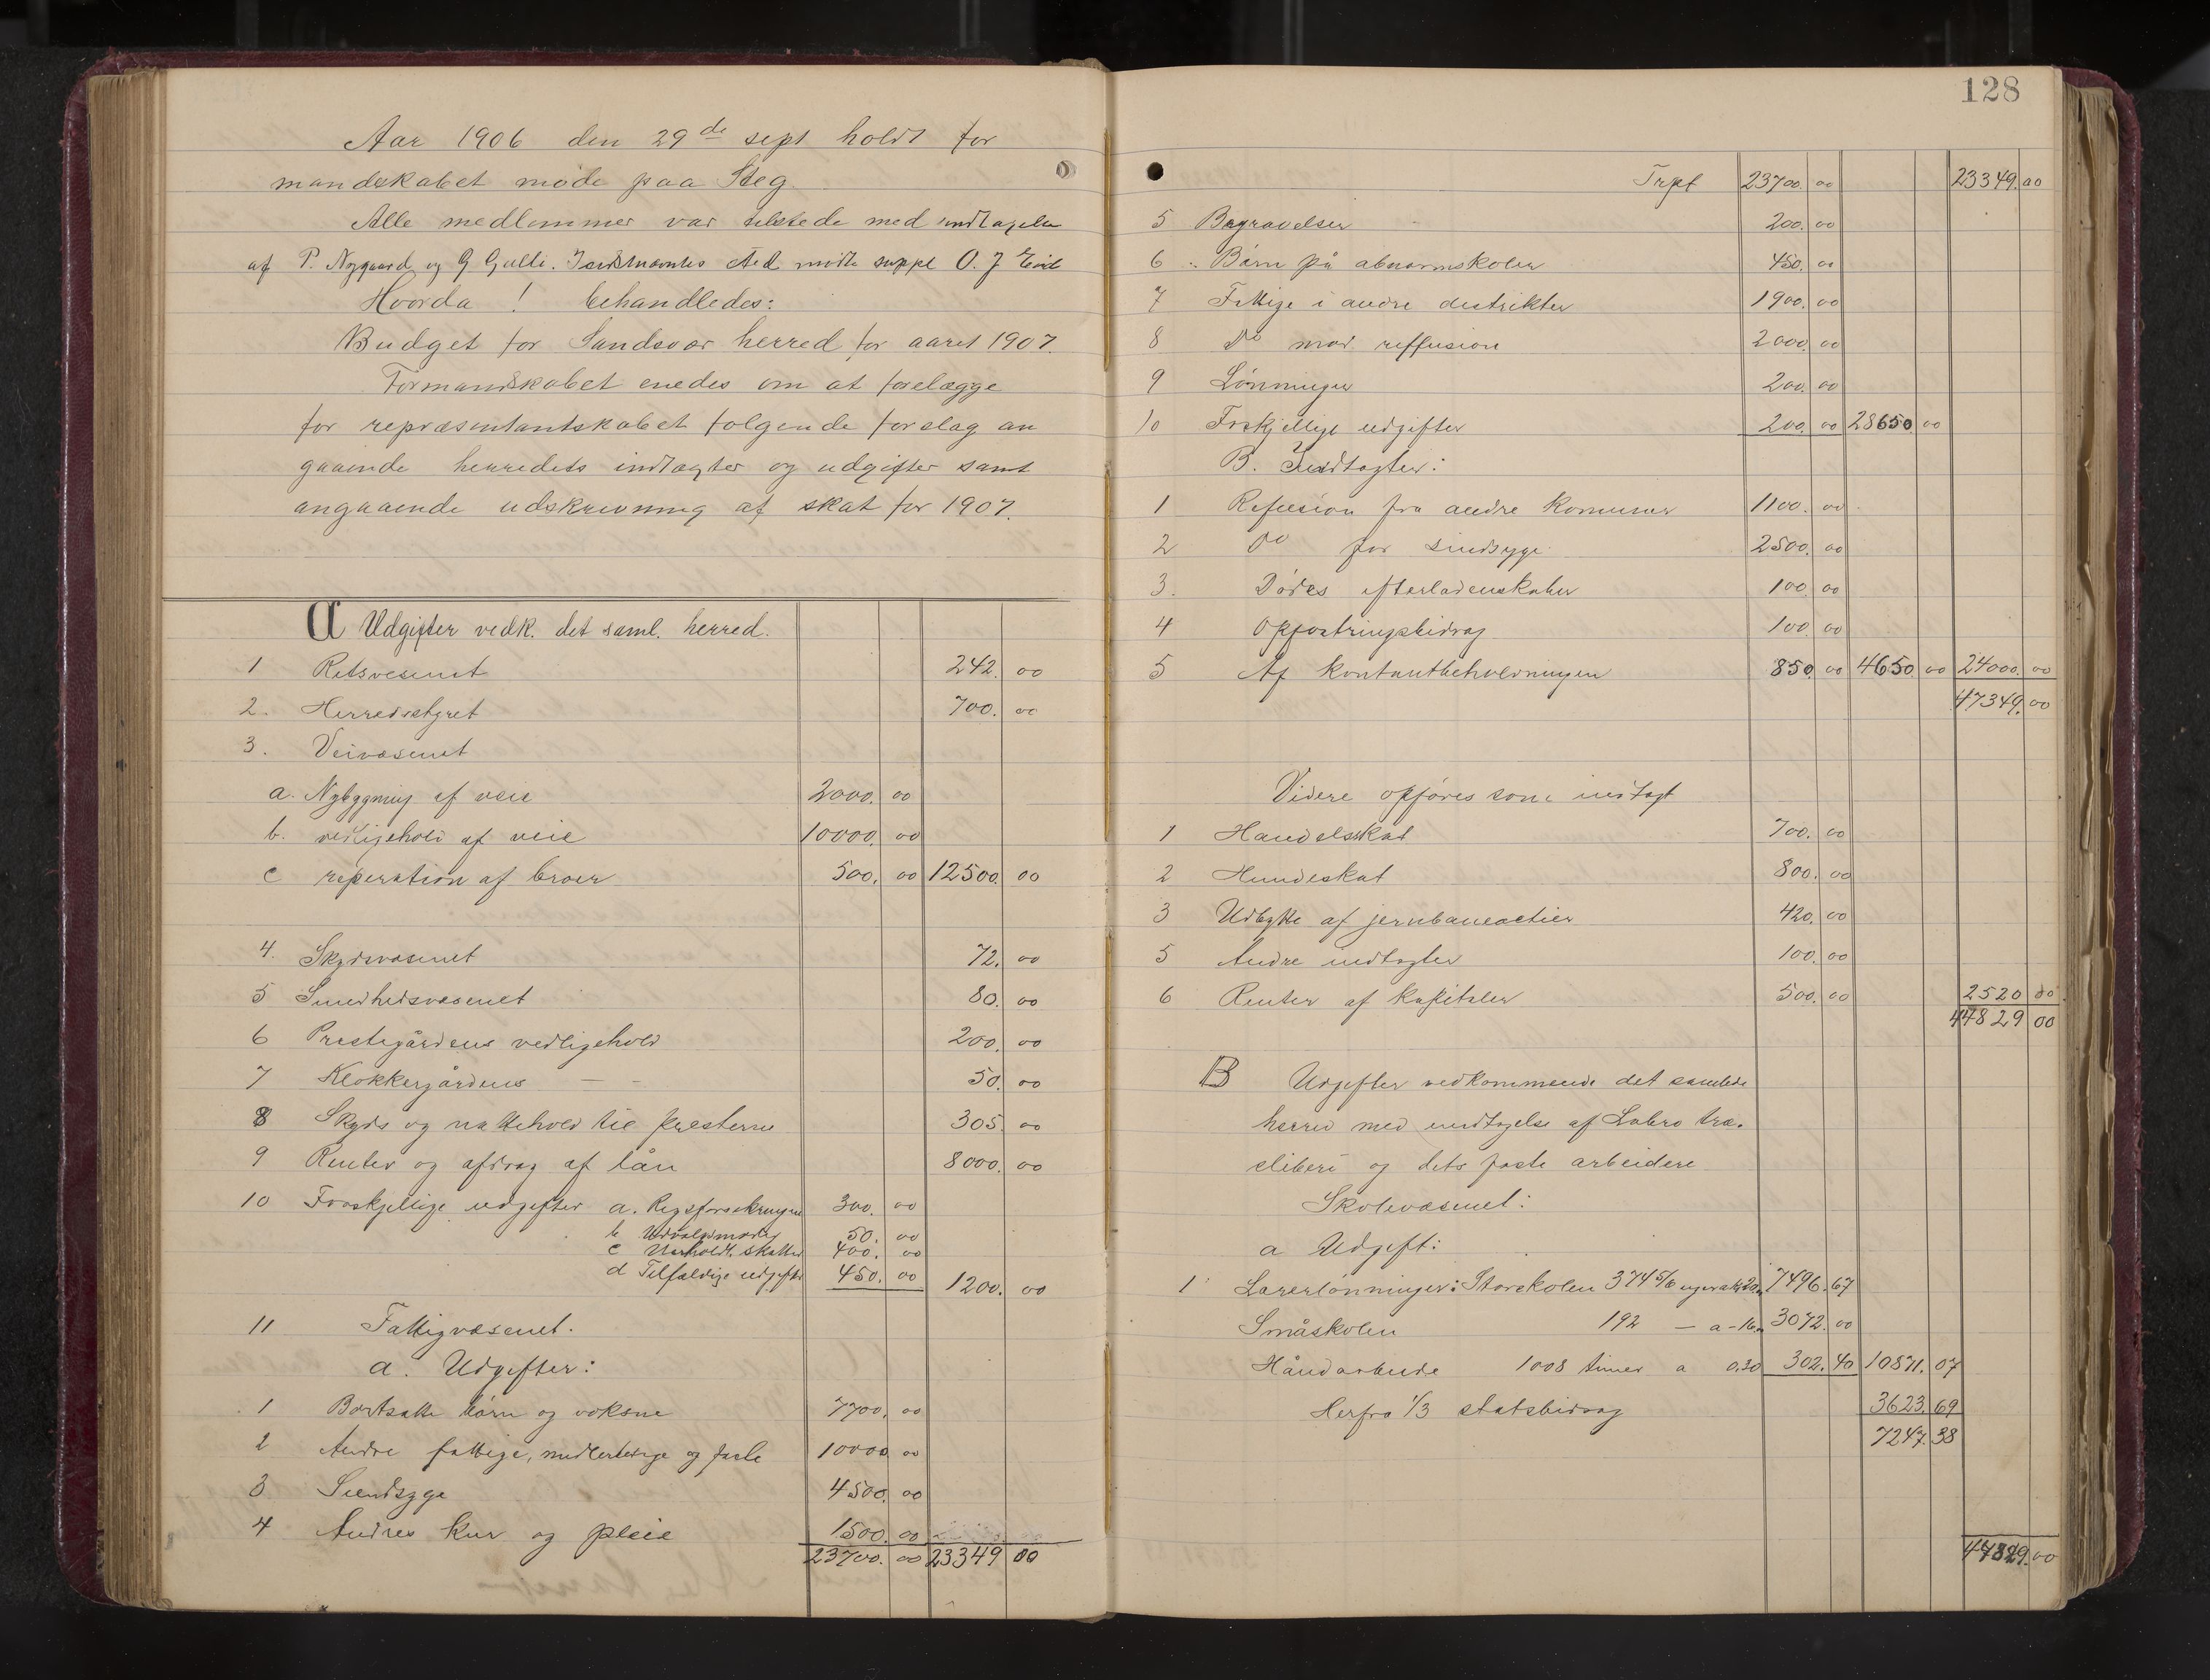 Aar 1906 den 29de sept holdt for
mandskabet møde paa Steg
Alle medlemmer var tilstede med undtagelse
af P. Nygaard og G Gulli. I
Hvorda! behandledes:
Budget for Sandsvær herred for aaret 1907.
Formandskabet enedes om at forelægge
for repræsentantskabet følgende forslag an
gaaende herredets indtægter og udgifter samt
angaaende udskrivning af skat for 1907.
A Udgifter vedk. det saml. herred.
1 Retsvesenet 242. 00
2. Herredsstyret 700. 00
3. Veivæsenet
a. Nybygning af veie 2000. 00
b. vedligehold af veie 10000. 00
c reperation af broer 500. 00 12500. 00
4. Skydsvæsenet 72. 00
5 Sundhedsvæsenet 80. 00
6 Prestegårdens vedligehold 200. 00
7 Klokkergårdens — - 50. 00
8 Skyds og nattehold til presterne 305. 00
9 Renter og afdrag af lån 8000. 00
10 Forskjellige udgifter a. 300. 00
b 50. 00
c Uerholdt. skatter 400. 00
d Tilfældige udgifter 450. 00 1200. 00
11 Fattigvæsenet.
a. Udgifter:
1 Bortsatte børn og voksne 7700. 00
2 Andre fattige, midlertidige og faste 10000 00
3 Sindsyge 4500. 00
4 Andres kur og pleie 1500. 00
23700. 00 23349 00
128
Trpt 23700. 00 23349. 00
5 Begravelser 200. 00
6 Børn på abnormskoler 450. 00
7 Fattige i andre distrikter 1900. 00
8 Do mod reffusion 2000. 00
9 Lønninger 200. 00
10 Forskjellige udgifter 200. 00 28650. 00
B. Indtægter:
1 Refusion fra andre kommuner 1100. 00
2 Do for sindsyge 2500. 00
3. Dødes efterladenskaber 100. 00
4 Opfostringsbidrag 100. 00
5 Af kontantbeholdningen 850. 00 4650. 00 24000. 00
47349. 00
Videre opføres som indtægt
1 Handelsskat 700. 00
2 Hundeskat 800. 00
3 Udbytte af jernbaneactier 420. 00
5 Andre indtægter 100. 00
6 Renter af kapitaler 500. 00 2520 00
44829 00
B Udgifter vedkommende det samlede
herred med undtagelse af Labro træ-
sliberi og dets faste arbeidere
Skolevæsenet:
a Udgift:
1 Lærerlønninger: Storskolen 374 5/6 uger a kr 20,- 7496. 67
Småskolen 192 — a - 16,- 3072. 00
Håndarbeide 1008 timer a 0.30 302. 40 10871. 07
Herfra 1/3 statsbidrag 3623. 69
7247. 38
44829. 00